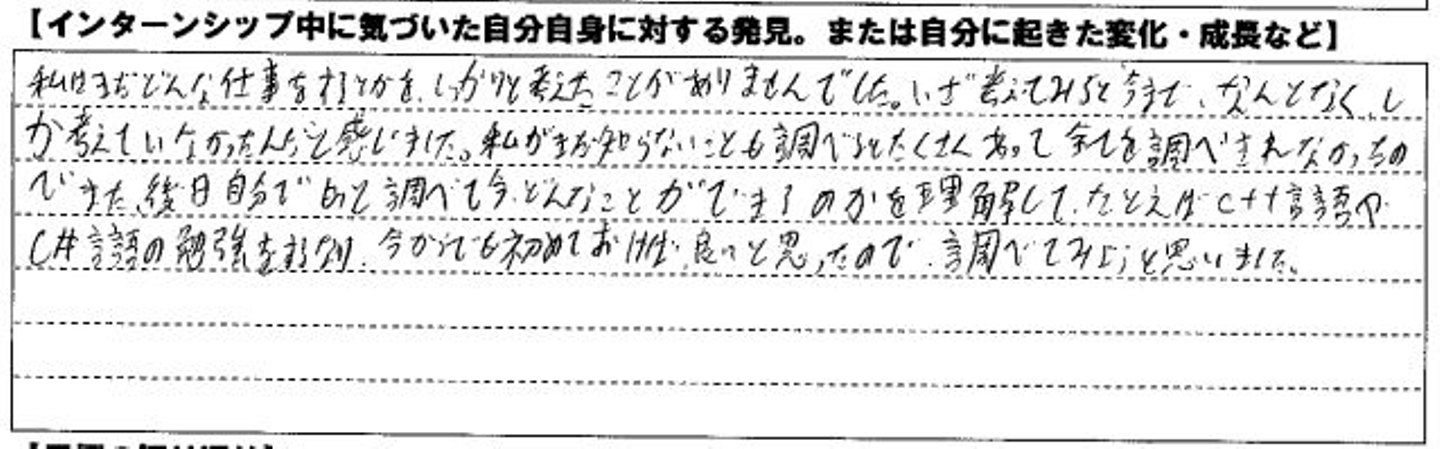 【インターンシップ中に気づいた自分自身に対する発見。または自分に起きた変化・成長など】
私はまだどんな仕事をするとかを、しっかりと考えたことがありませんでした。いざ考えてみると今まで、なんとなく、し
か考えていなかったんだと感じました。私がまだ知らないことも調べるとたくさんあって全てを調べきれなかったの
でまた、後日自分で調べて今、どんなことができるのかを理解して、たとえばC++言語や
C#言語の勉強をするなり、今からでも初めておけば、良いと思ったので、調べてみようと思いました。